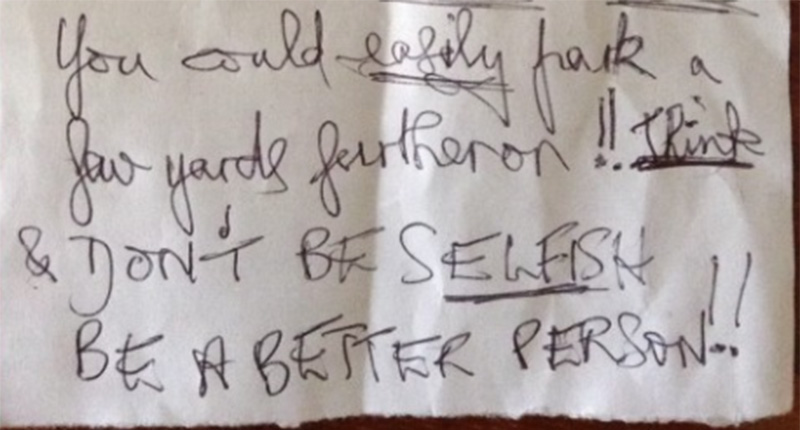 You could easily park a
few yards furtheron !! Think
& DON'T BE SELFISH
BE A BETTER PERSON!!